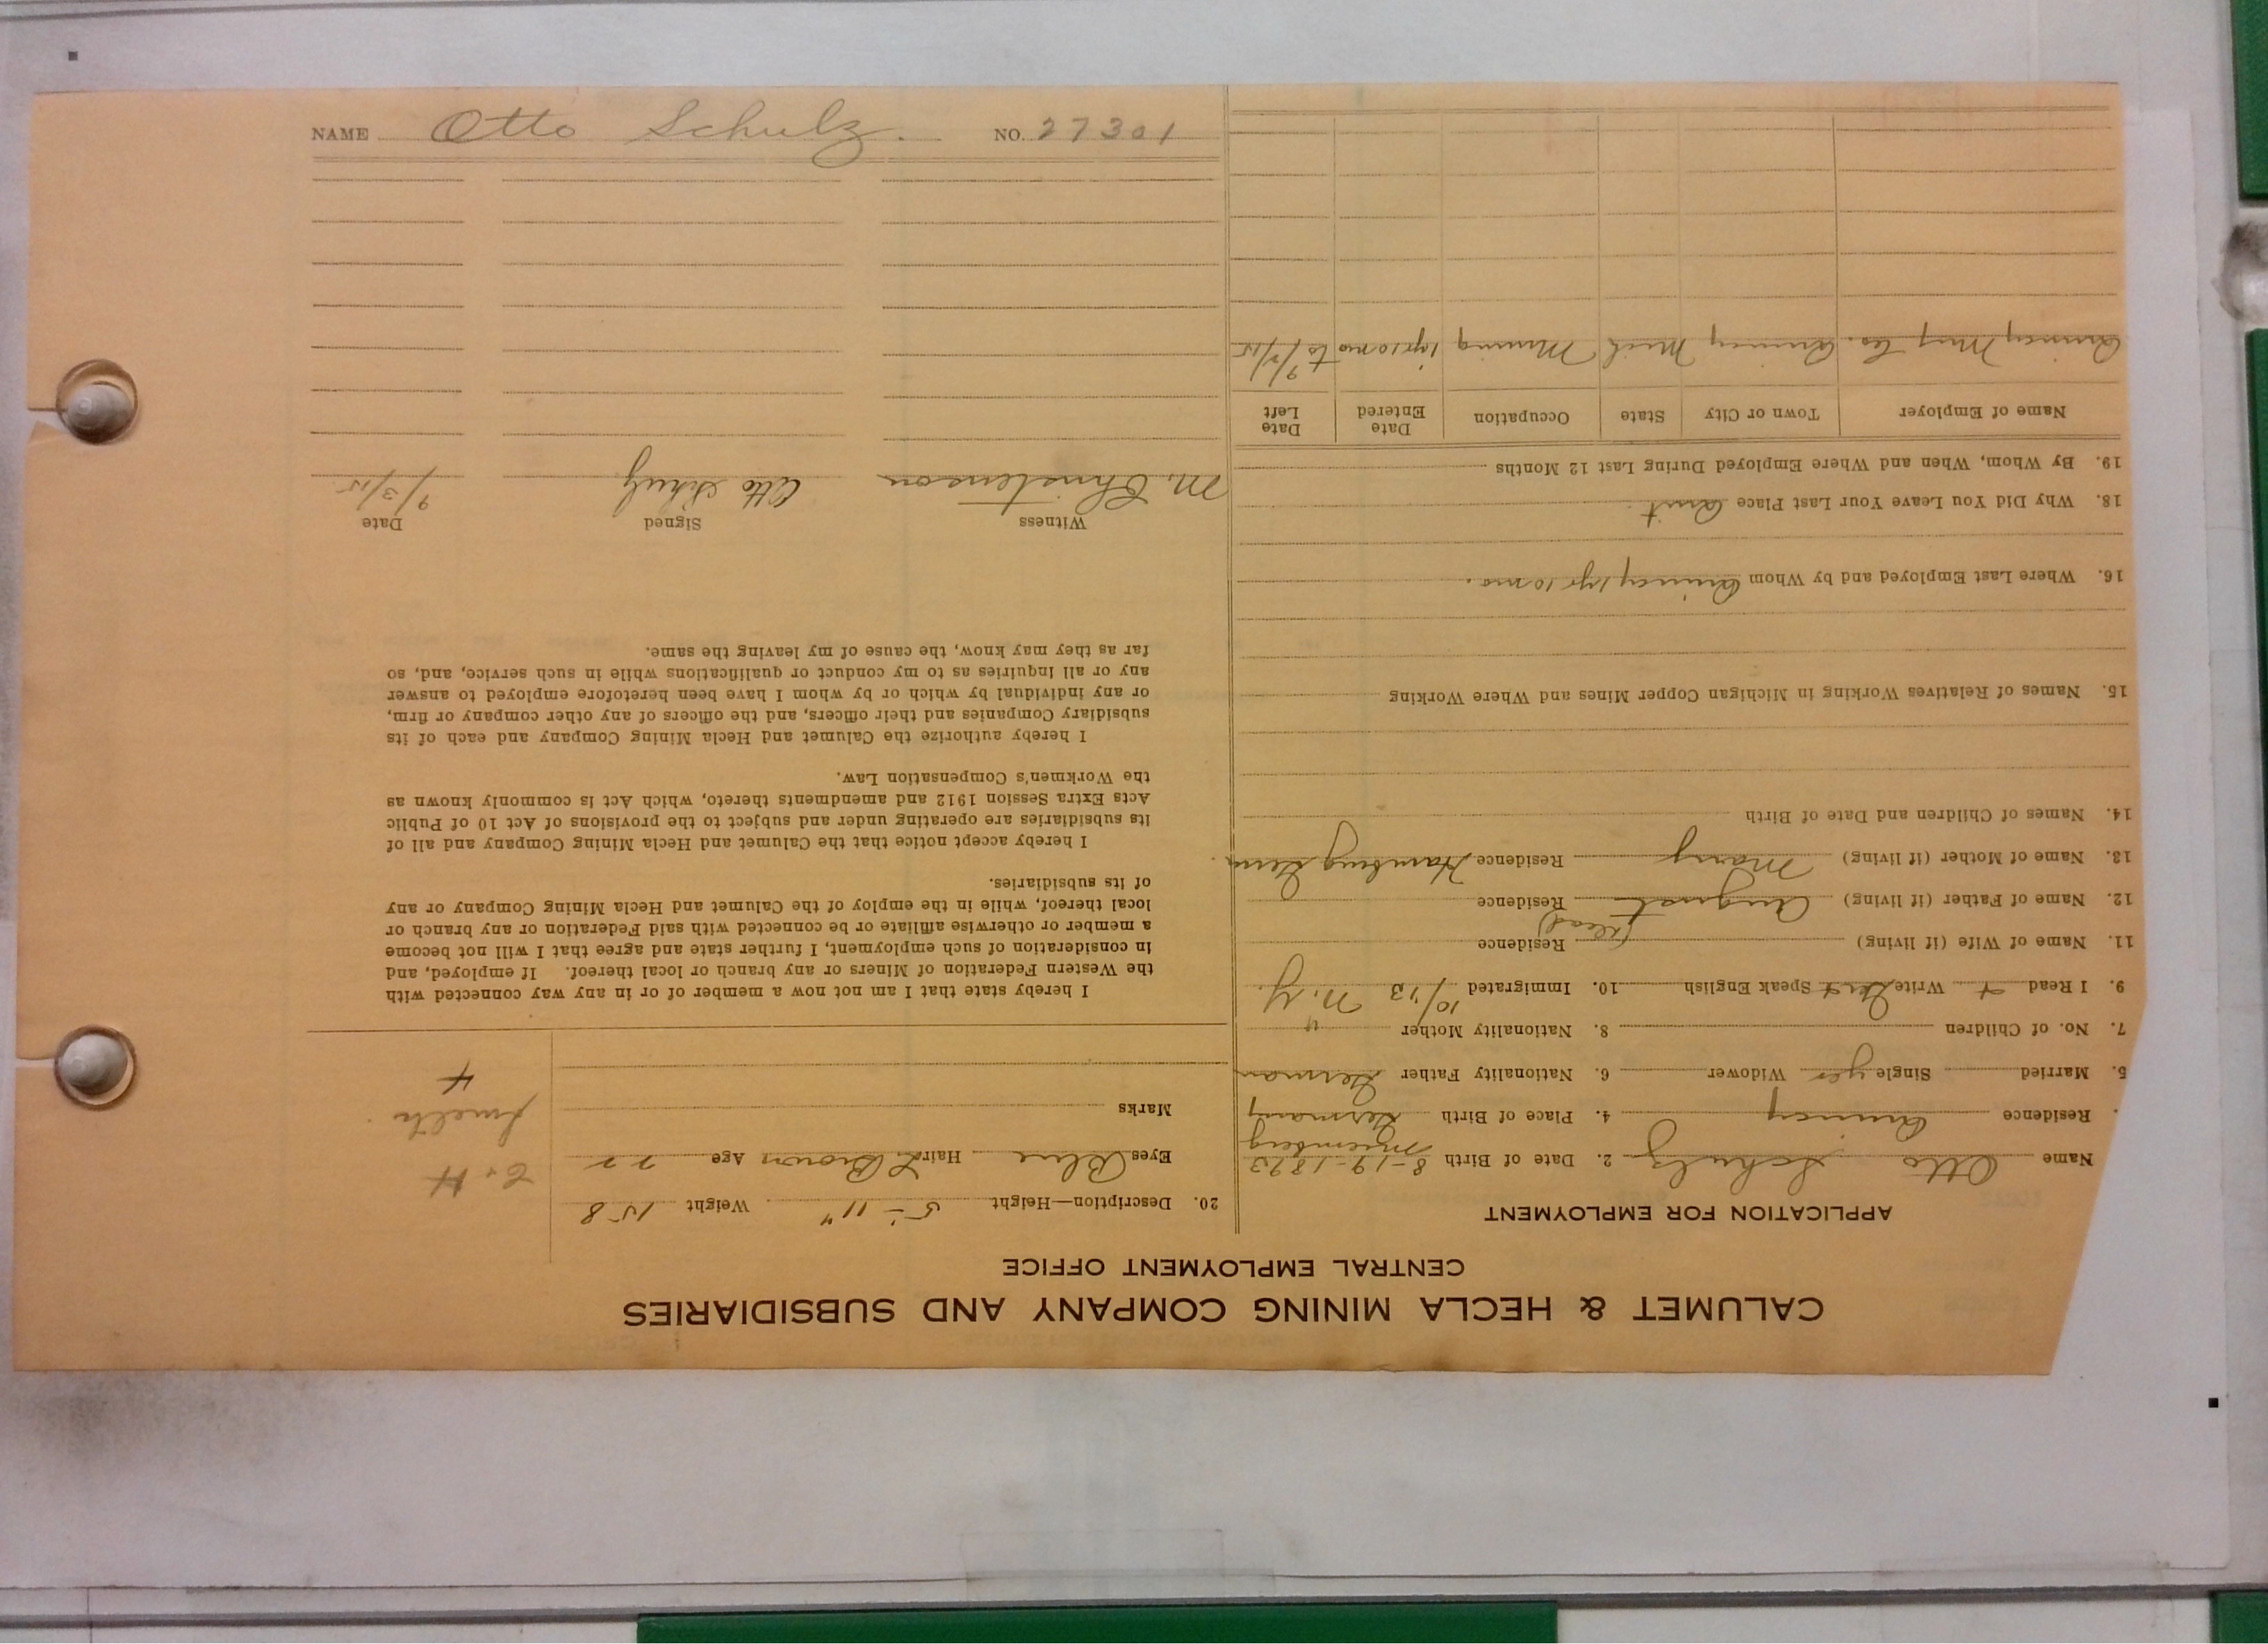 CALUMET & HECLA MINING COMPANY AND SUBSIDIARIES
CENTRAL EMPLOYMENT OFFICE
APPLICATION FOR EMPLOYMENT
Name Otto Schulz 2. Date of Birth 8-19-1893
Residence Quincy 4. Place of Birth Germany
5. Married Single yes Widower 6. Nationality Father German
7. No. of Children 8. Nationality Mother "
9. I Read + Write Speak English 10. Immigrated 10/13 N.Y.
11. Name of Wife (if living) Residence
12. Name of Father (if living) August (dead) Residence
13. Name of Mother (if living) Mary Residence Hamburg Germ.
14. Names of Children and Date of Birth
15. Names of Relatives Working in Michigan Copper Mines and Where Working
16. Where Last Employed and by Whom Quincy 1 yr 10 mo.
18. Why Did You Leave Your Last Place Quit.
19. By Whom, When and Where Employed During Last 12 Months
Name of Employer Town or City State Occupation Date Entered Date Left
Quincy Mng Co. Quincy Mich Mining 1 yr 10 mo to 9/2/15
20. Description—Height 5-11" Weight 158
Eyes Blue Hair L. Brown Age 22
Marks
C & H
Smelter
I hereby state that I am not now a member of or in any way connected with
the Western Federation of Miners or any branch or local thereof. If employed, and
in consideration of such employment, I further state and agree that I will not become
a member or otherwise affiliate or be connected with said Federation or any branch or
local thereof, while in the employ of the Calumet and Hecla Mining Company or any
of its subsidiaries.
I hereby accept notice that the Calumet and Hecla Mining Company and all of
its subsidiaries are operating under and subject to the provisions of Act 10 of Public
Acts Extra Session 1912 and amendments thereto, which Act is commonly known as
the Workmen's Compensation Law.
I hereby authorize the Calumet and Hecla Mining Company and each of its
subsidiary Companies and their officers, and the officers of any other company or firm,
or any individual by which or by whom I have been heretofore employed to answer
any or all inquiries as to my conduct or qualifications while in such service, and, so
far as they may know, the cause of my leaving the same.
Witness Signed Date
M. Christenson Otto Schulz 9/3/15
NAME Otto Schulz. NO. 27301